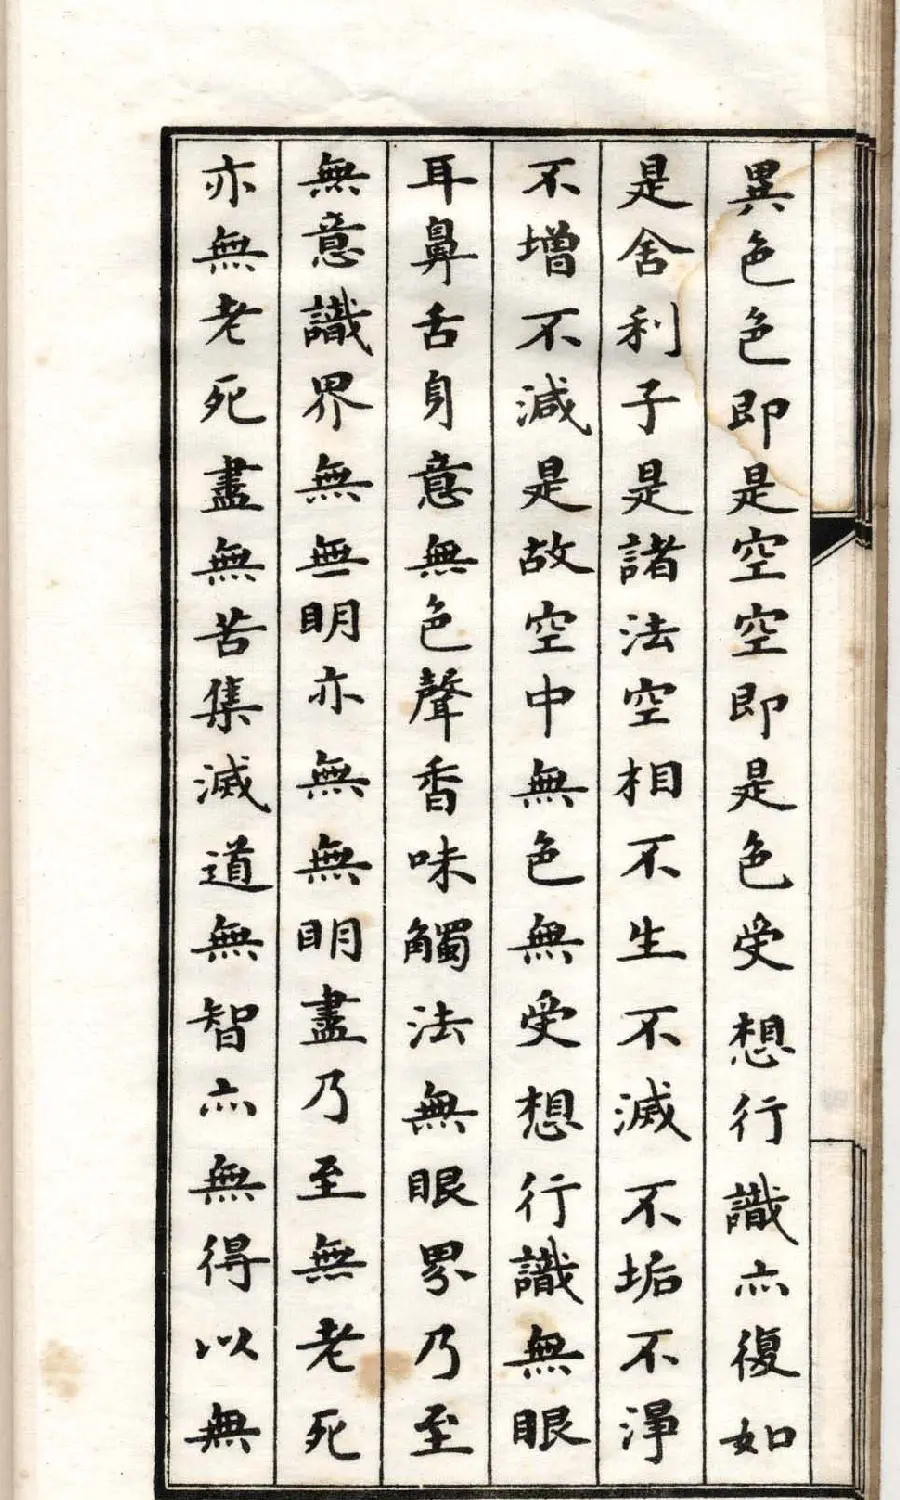 異色色即是空空即是色受想行識亦復如
是舍利子是諸法空相不生不滅不垢不淨
不增不減是故空中無色無受想行識無眼
耳鼻舌身意無色聲香味觸法無眼界乃至
無意識界無無明亦無無明盡乃至無老死
亦無老死盡無苦集滅道無智亦無得以無